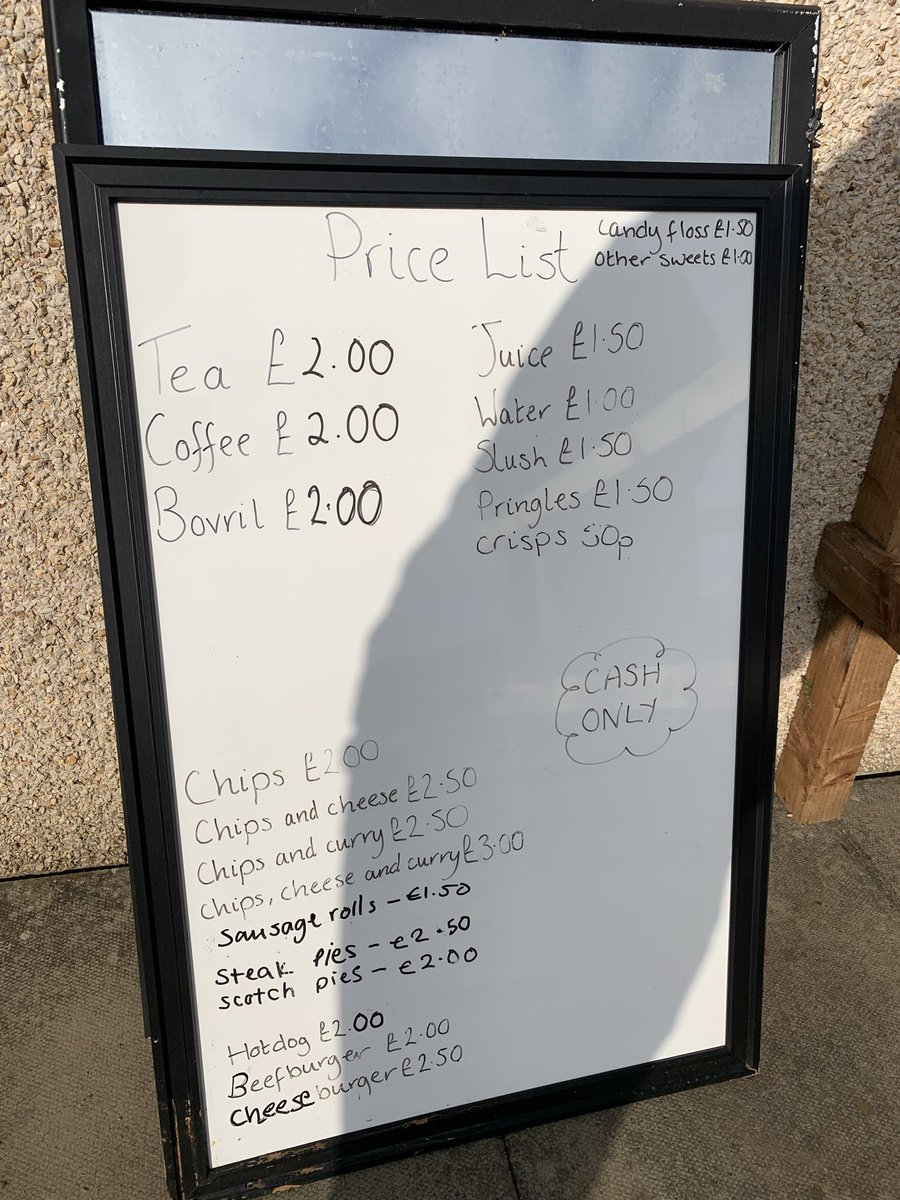 Price List
Candy floss £1.50
Other sweets £1.00
Tea £2.00
Coffee £2.00
Bovril £2.00
Juice £1.50
Water £1.00
Slush £1.50
Pringles £1.50
crisps 50p
CASH
ONLY
Chips £2.00
Chips and cheese £2.50
Chips and curry £2.50
Chips, cheese and curry £3.00
Sausage rolls - €1.50
Steak pies - €2.50
scotch pies - €2.00
Hotdog £2.00
Beefburger £2.00
Cheeseburger £2.50